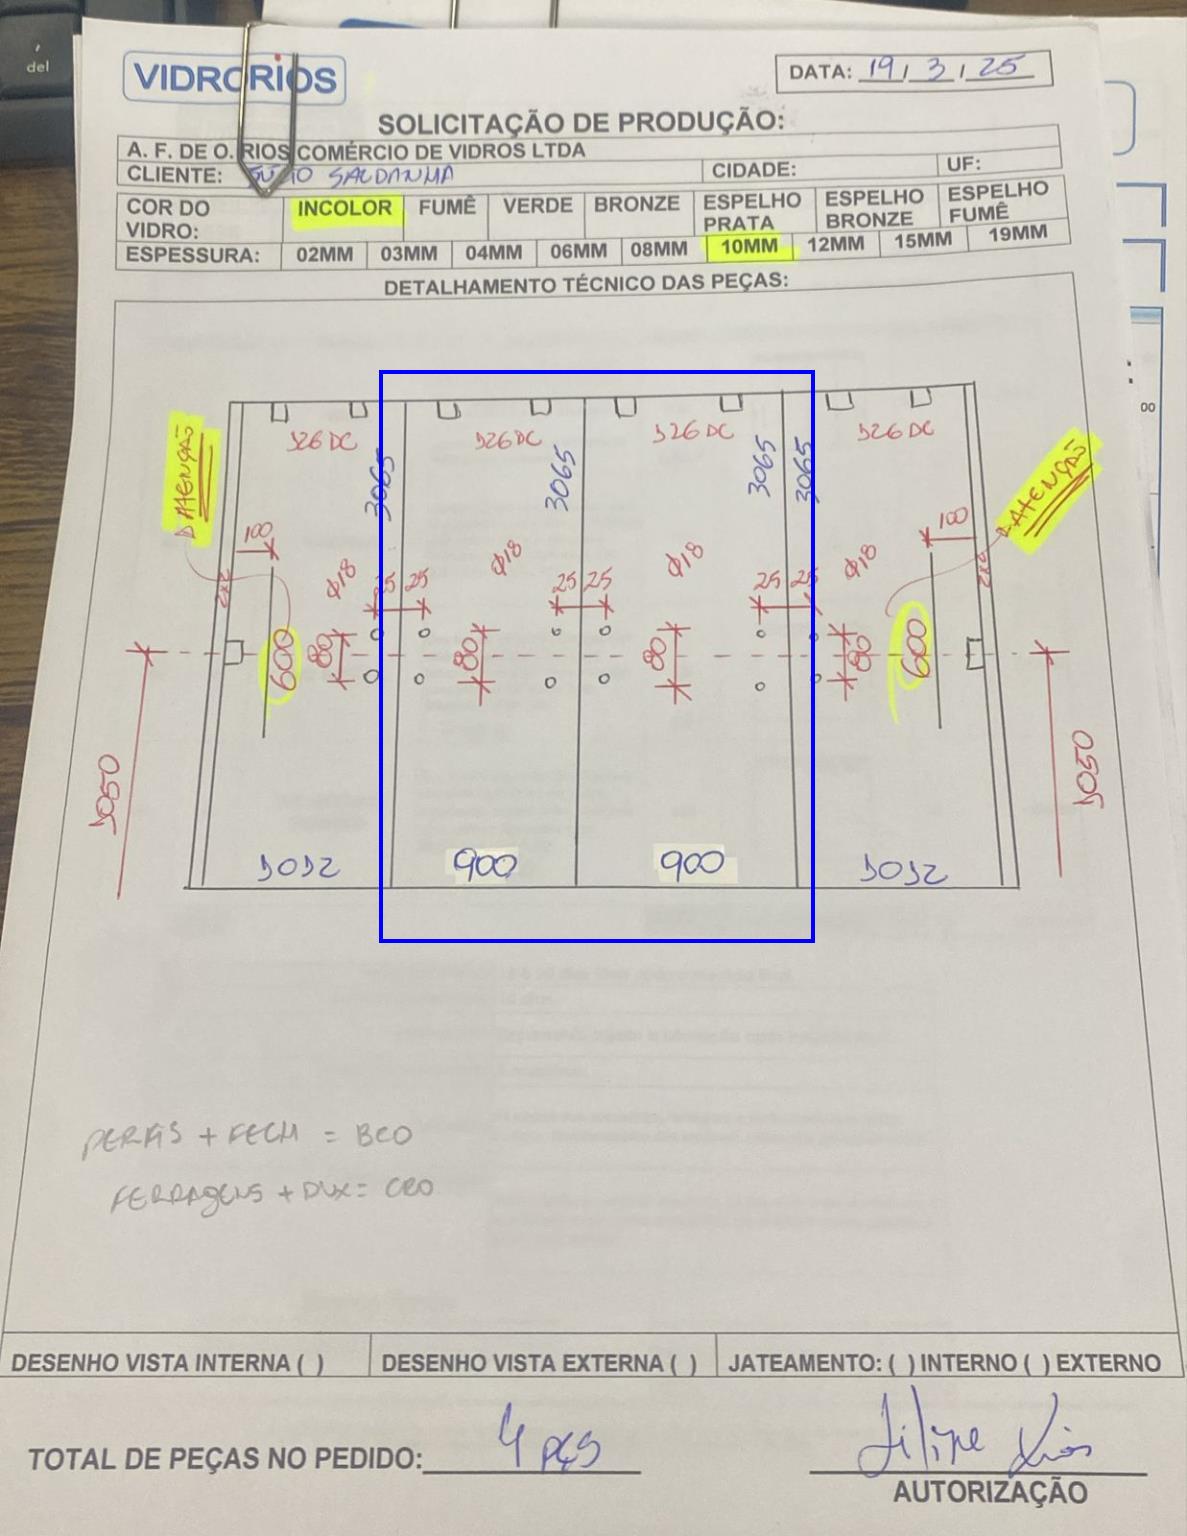 del
VIDRORIOS
DATA: 19 / 3 / 25
SOLICITAÇÃO DE PRODUÇÃO:
A. F. DE O. RIOS COMÉRCIO DE VIDROS LTDA
CLIENTE: SALDANHA CIDADE: UF:
COR DO VIDRO: INCOLOR FUMÊ VERDE BRONZE ESPELHO PRATA ESPELHO BRONZE ESPELHO FUMÊ
ESPESSURA: 02MM 03MM 04MM 06MM 08MM 10MM 12MM 15MM 19MM
DETALHAMENTO TÉCNICO DAS PEÇAS:
00
ATENÇÃO 326 DC 326 DC 326 DC 326 DC ATENÇÃO
3065 3065 3065 3065
100 100
Ø18 Ø18 Ø18 Ø18
2x2 25 25 25 25 25 25 2x2
600 80 80 80 80 600
1050 1050
1012 900 900 1012
PERFIS + FECH = BCO
FERRAGENS + DUX = CRO
DESENHO VISTA INTERNA ( ) DESENHO VISTA EXTERNA ( ) JATEAMENTO: ( ) INTERNO ( ) EXTERNO
TOTAL DE PEÇAS NO PEDIDO: 4 PÇS Filipe Rios
AUTORIZAÇÃO